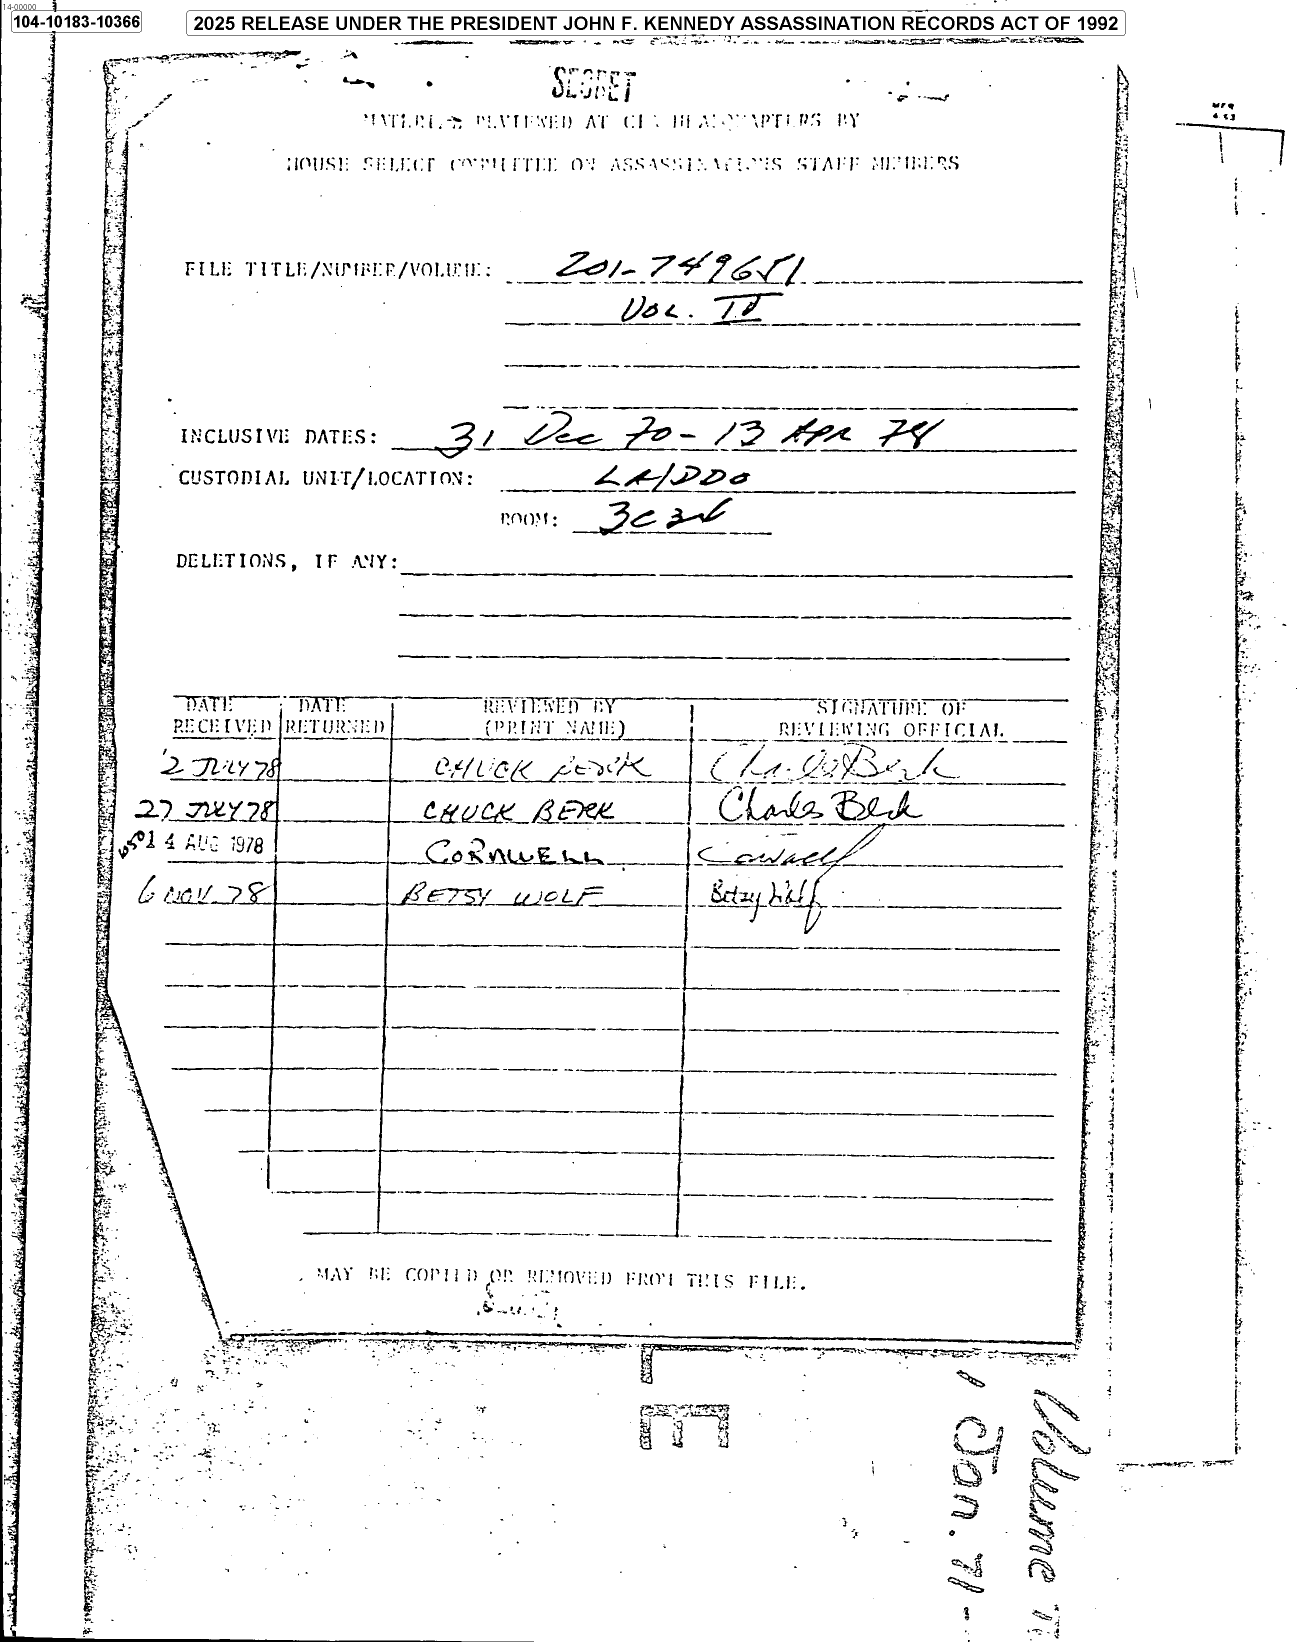 14-00000
104-10183-10366
2025 RELEASE UNDER THE PRESIDENT JOHN F. KENNEDY ASSASSINATION RECORDS ACT OF 1992
SECRET
REVIEWED AT CIA HEADQUARTERS BY
HOUSE SELECT COMMITTEE ON ASSASSINATIONS STAFF MEMBERS
FILE TITLE/NUMBER/VOLUME: 201-749651
VOL. IV
INCLUSIVE DATES: 31 Dec 70 - 13 APR 74
CUSTODIAL UNIT/LOCATION: LA/DDO
ROOM:
DELETIONS, IF ANY:
DATE RECEIVED DATE RETURNED REVIEWED BY (PRINT NAME) SIGNATURE OF REVIEWING OFFICIAL
2 JULY 78 CHUCK BERK Charles Berk
27 JULY 78 CHUCK BERK Charles Berk
14 AUG 1978 CORNWELL Cornwell
6 NOV. 78 BETSY WOLF Betsy Wolf
MAY BE COPIED OR REMOVED FROM THIS FILE.
Volume
1 Jan. 71 -